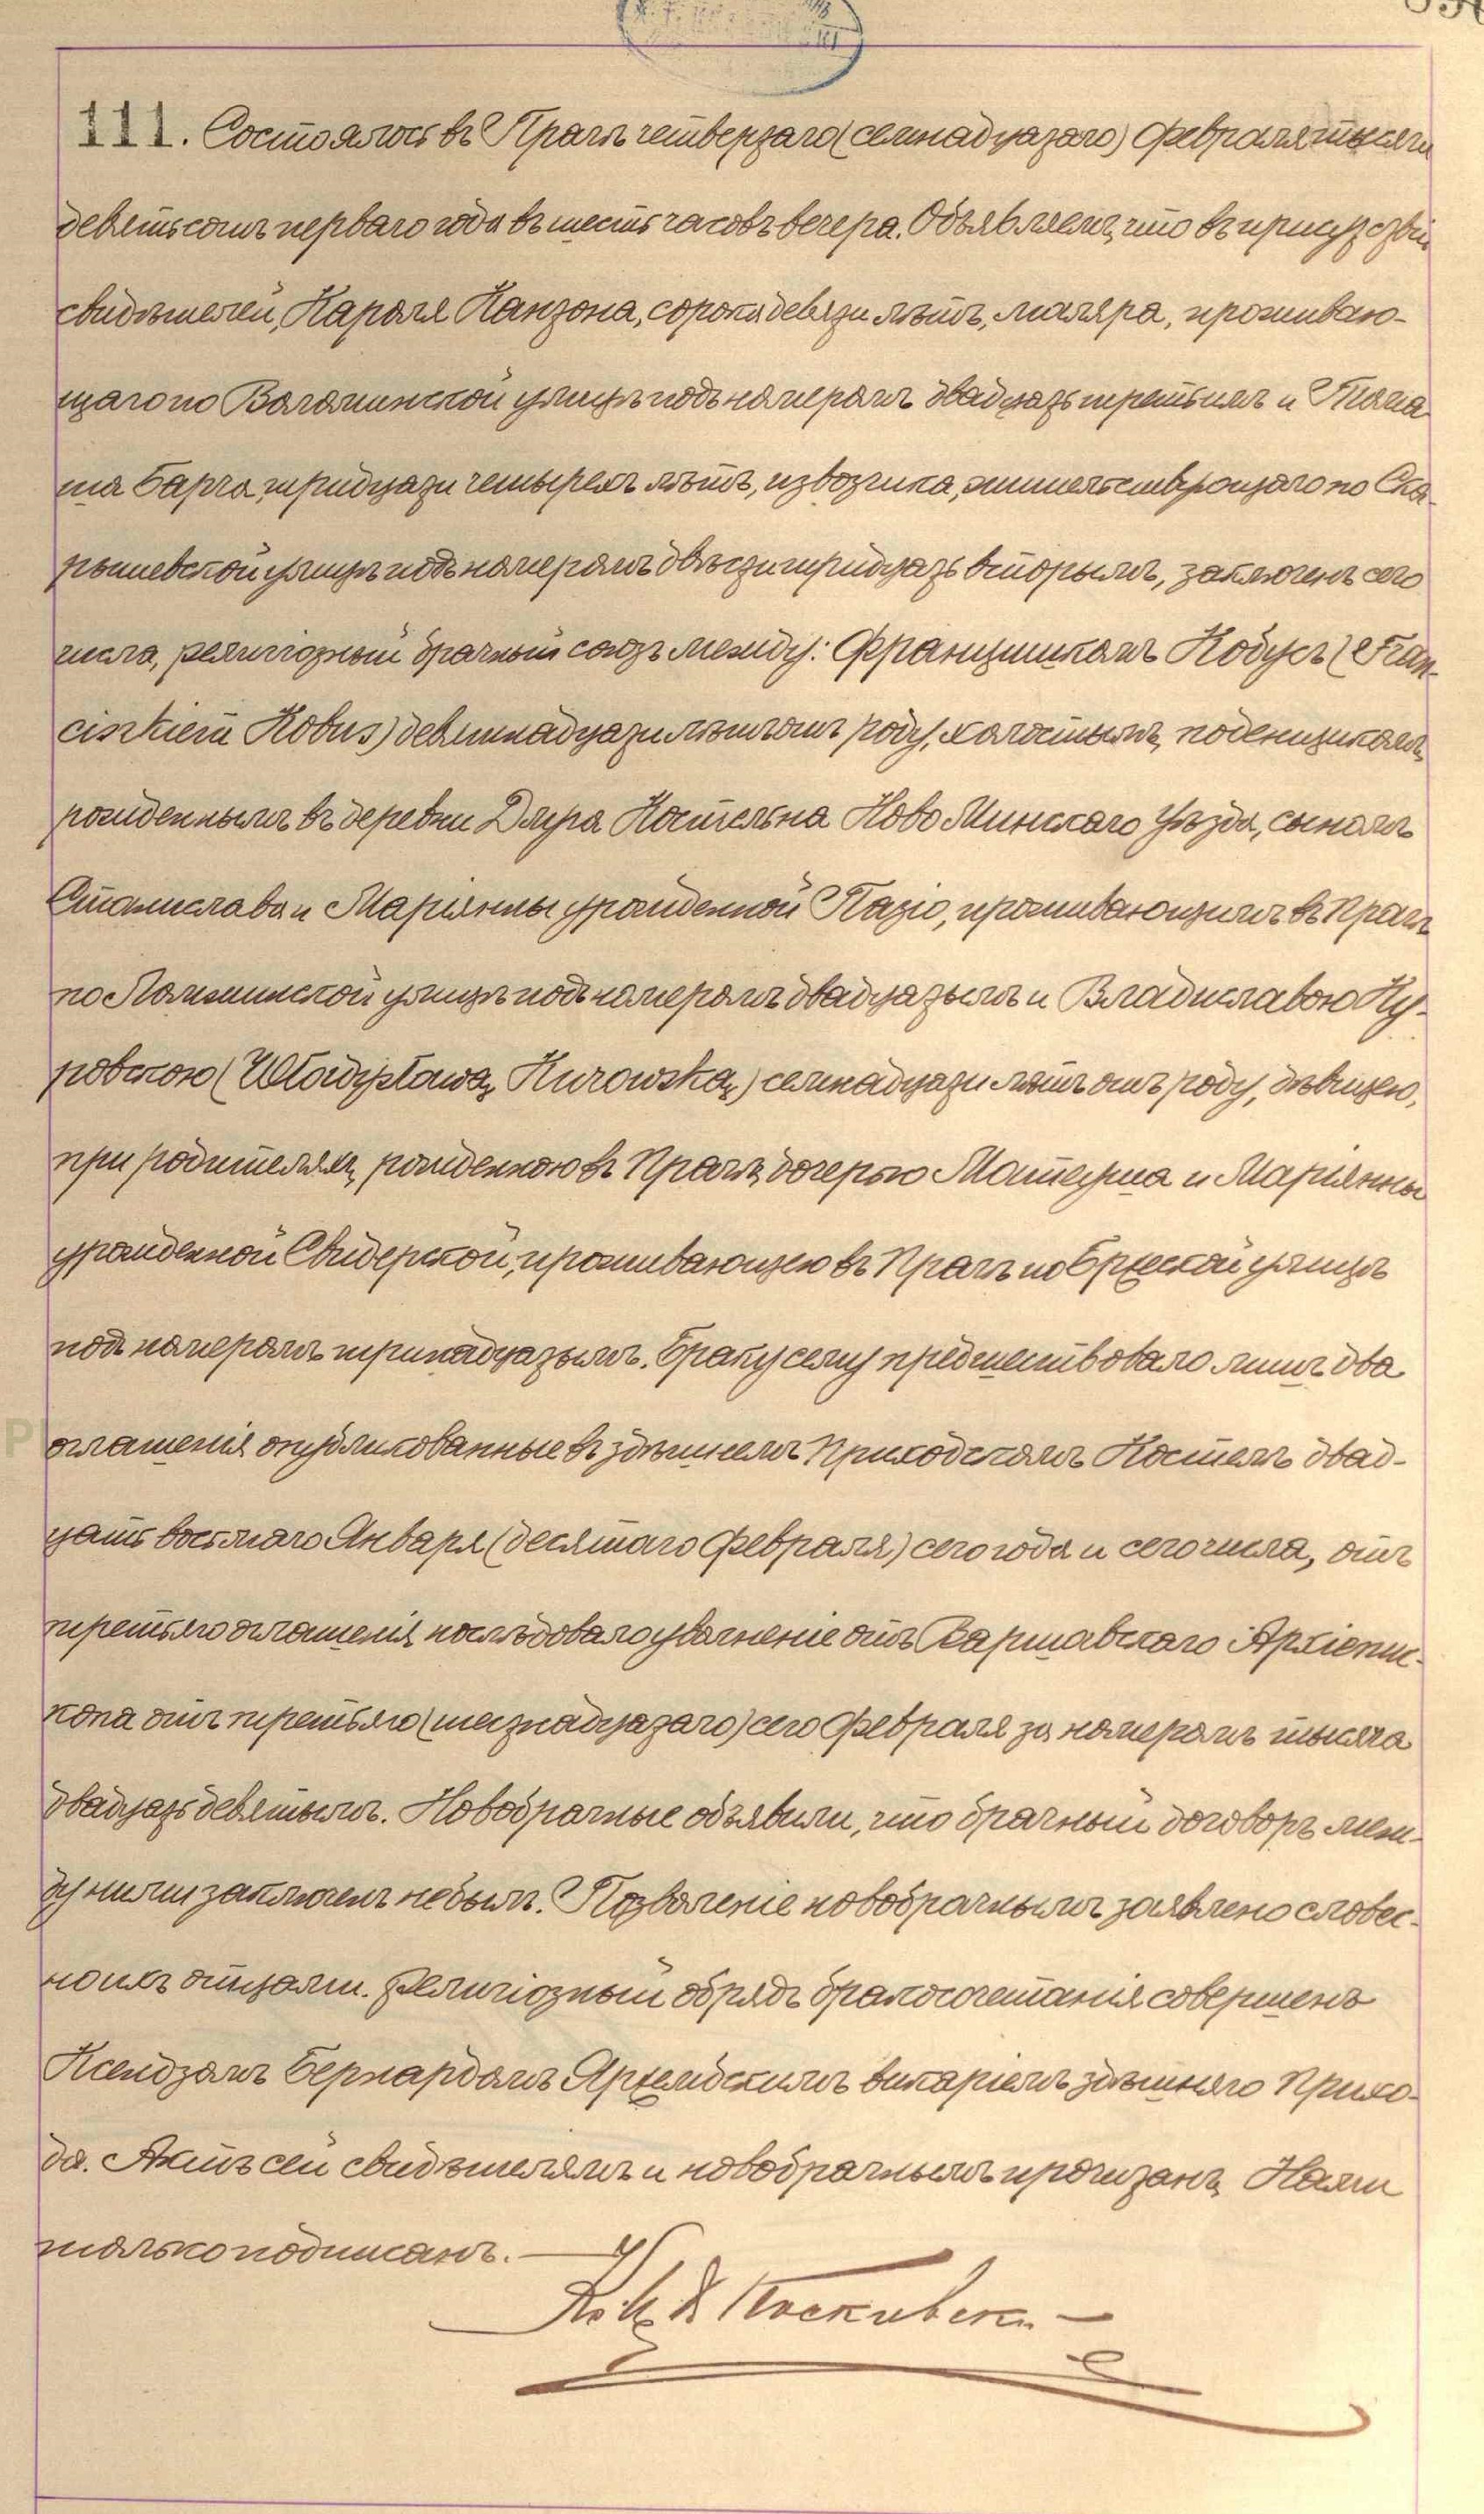 111. Состоялось въ Прагѣ четвертаго (семнадцатаго) Февраля тысяча
девятьсотъ перваго года въ шесть часовъ вечера. Объявляемъ, что въ присутствіи
свидѣтелей, Кароля Канзона, сорока девяти лѣтъ, маляра, проживаю-
щаго по Воломинской улицѣ подъ номеромъ двадцать третьимъ и Тома
ша Барча, тридцати четырехъ лѣтъ, извозчика, жительствующаго по Ска-
рышевской улицѣ подъ номеромъ двѣсти тридцать вторымъ, заключенъ сего
числа, религіозный брачный союзъ между: Францишкомъ Кобусъ (Fran-
ciszkiem Kobus) девятнадцати лѣтъ отъ роду, холостымъ, поденщикомъ,
рожденнымъ въ деревни Длуга Костельна Ново Минскаго уѣзда, сыномъ
Станислава и Маріянны урожденной Пазіо, проживающимъ въ Прагѣ
по Ломжинской улицѣ подъ номеромъ двадцатымъ и Владиславою Ку-
ровскою (Władysławą Kurowską) семнадцати лѣтъ отъ роду, дѣвицею,
при родителяхъ, рожденною въ Прагѣ, дочерью Матеуша и Маріянны
урожденной Свидерской, проживающею въ Прагѣ по Брестской улицѣ
подъ номеромъ тринадцатымъ. Браку сему предшествовало лишь два
оглашенія опубликованные въ здѣшнемъ Приходскомъ Костелѣ двад-
цать восьмаго Января (десятаго Февраля) сего года и сего числа, отъ
третьяго оглашенія, послѣдовало увольненіе отъ Варшавскаго Архіепис-
копа отъ третьяго (шестнадцатаго) сего Февраля за номеромъ тысяча
двадцать девятымъ. Новобрачные объявили, что брачный договоръ меж-
ду ними заключенъ небылъ. Позволеніе новобрачнымъ заявлено словес-
но ихъ отцами. Религіозный обрядъ бракосочетанія совершенъ
Ксендзомъ Бернардомъ викаріемъ здѣшняго Прихо-
да. Актъ сей свидѣтелямъ и новобрачнымъ прочитанъ, Нами
только подписанъ.